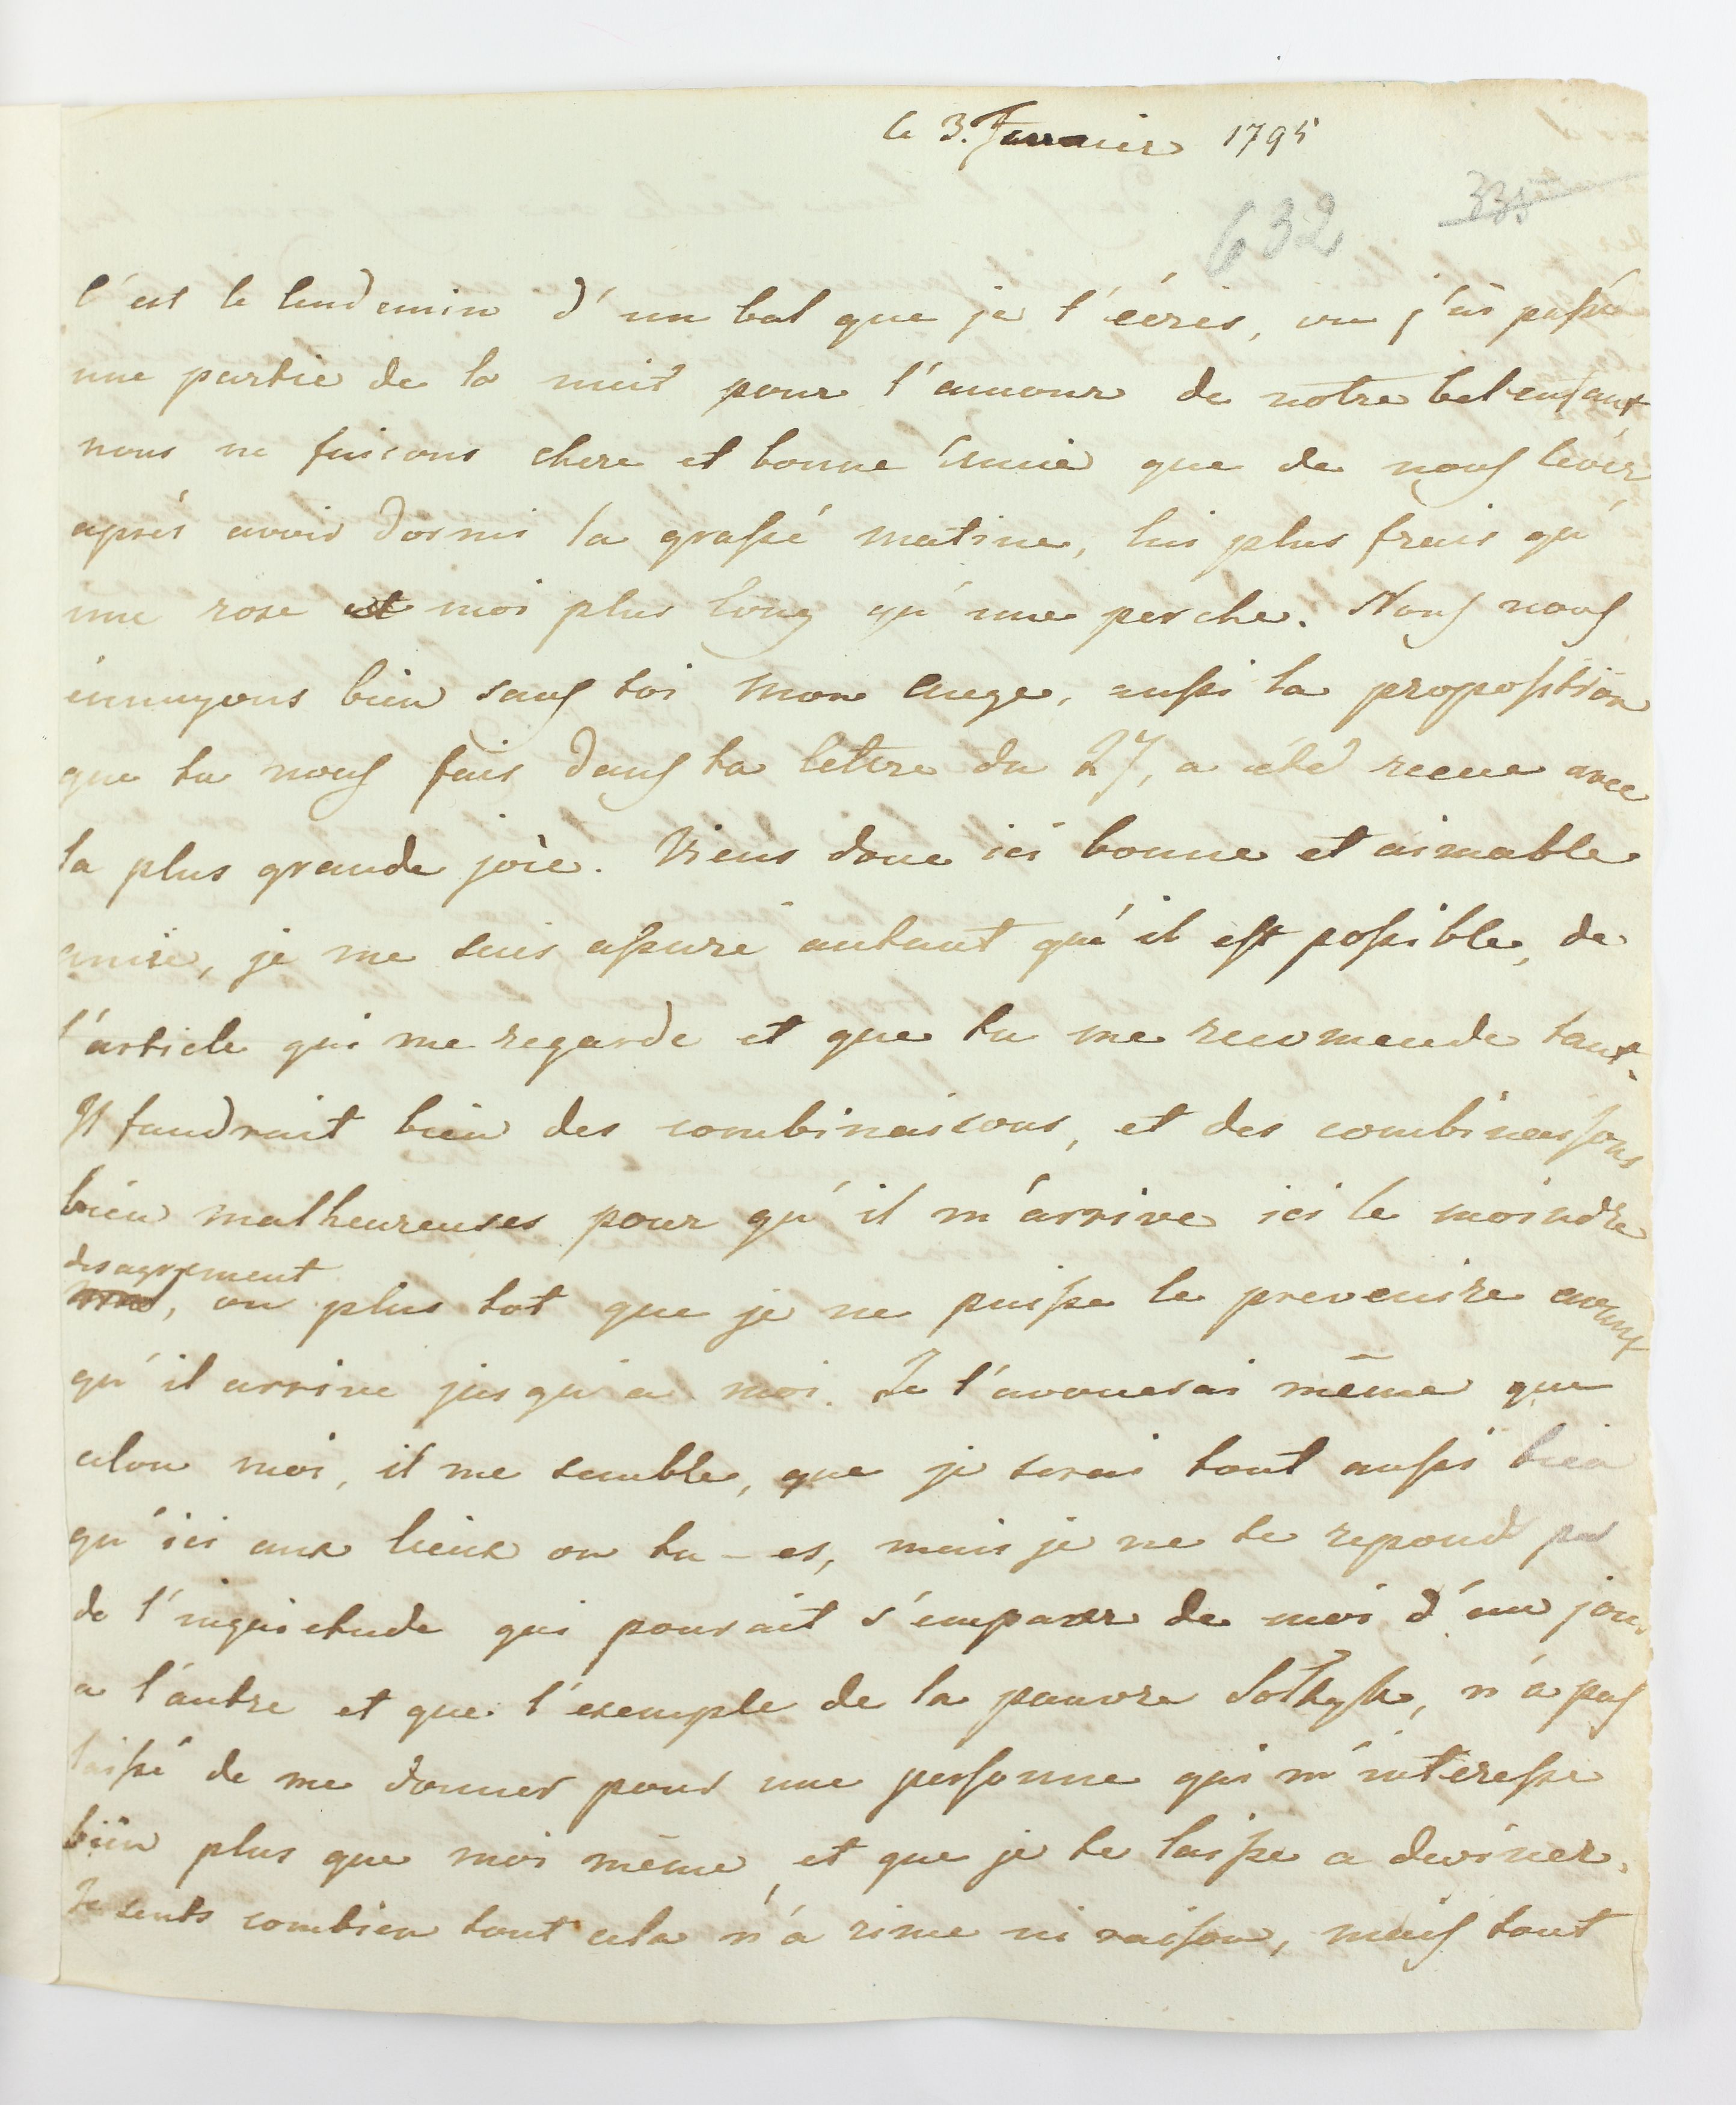 le 3. Janvier 1795
632
335
C'est le lendemin d'un bal que je t'écris, ou j'ai passé
une partie de la nuit pour l'amour de notre bel enfant,
nous ne faisons chere et bonne Amie que de nous lever
aprés avoir dormi la grassé matine, lui plus frais qu'
une rose et moi plus long qu'une perche. Nous nous
ennuyons bien sans toi mon Ange, aussi la proposition
que tu nous fais dans ta lettre du 27, a été recue avec
la plus grande joie. Viens donc ici bonne et aimable
amie, je me suis assuré autant qu'il est possible, de
l'article qui me regarde et que tu me recomende tant.
Il faudrait bien des combinaisons, et des combinaisons
bien malheureuses pour qu'il m'arrive ici le moindre
desagrement
, ou plus tot que je ne puisse le prevenire avant
qu'il arrive jusqu'a moi. Je t'avouerai même que
selon moi, il me semble, que je serai tout aussi bien
qu'ici aux lieux ou tu-es, mais je ne te repond pas
de l'inquietude qui pourait s'emparer de moi d'un jour
a l'autre et que l'exemple de la pauvre , n'a pas
laissé de me donner pour une personne qui m'interesse
bien plus que moi même, et que je te laisse a deviner.
Je sents combien tout cela n'a rime ni raison, mais tout